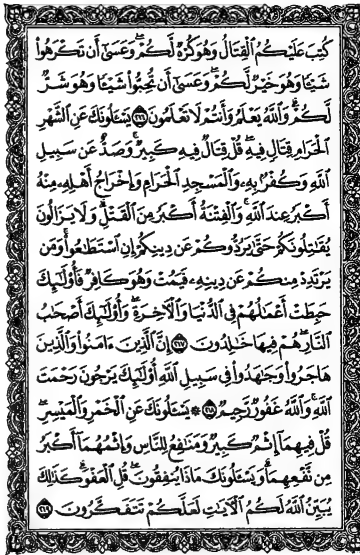 كُتِبَ عَلَيْكُمُ ٱلْقِتَالُ وَهُوَ كُرْهٌ لَّكُمْ ۖ وَعَسَىٰٓ أَن تَكْرَهُوا۟
شَيْـًٔا وَهُوَ خَيْرٌ لَّكُمْ ۖ وَعَسَىٰٓ أَن تُحِبُّوا۟ شَيْـًٔا وَهُوَ شَرٌّ
لَّكُمْ ۗ وَٱللَّهُ يَعْلَمُ وَأَنتُمْ لَا تَعْلَمُونَ ﴿٢١٦﴾ يَسْـَٔلُونَكَ عَنِ ٱلشَّهْرِ
ٱلْحَرَامِ قِتَالٍ فِيهِ ۖ قُلْ قِتَالٌ فِيهِ كَبِيرٌ ۖ وَصَدٌّ عَن سَبِيلِ
ٱللَّهِ وَكُفْرٌۢ بِهِۦ وَٱلْمَسْجِدِ ٱلْحَرَامِ وَإِخْرَاجُ أَهْلِهِۦ مِنْهُ
أَكْبَرُ عِندَ ٱللَّهِ ۚ وَٱلْفِتْنَةُ أَكْبَرُ مِنَ ٱلْقَتْلِ ۗ وَلَا يَزَالُونَ
يُقَـٰتِلُونَكُمْ حَتَّىٰ يَرُدُّوكُمْ عَن دِينِكُمْ إِنِ ٱسْتَطَـٰعُوا۟ ۚ وَمَن
يَرْتَدِدْ مِنكُمْ عَن دِينِهِۦ فَيَمُتْ وَهُوَ كَافِرٌ فَأُو۟لَـٰٓئِكَ
حَبِطَتْ أَعْمَـٰلُهُمْ فِى ٱلدُّنْيَا وَٱلْـَٔاخِرَةِ ۖ وَأُو۟لَـٰٓئِكَ أَصْحَـٰبُ
ٱلنَّارِ ۖ هُمْ فِيهَا خَـٰلِدُونَ ﴿٢١٧﴾ إِنَّ ٱلَّذِينَ ءَامَنُوا۟ وَٱلَّذِينَ
هَاجَرُوا۟ وَجَـٰهَدُوا۟ فِى سَبِيلِ ٱللَّهِ أُو۟لَـٰٓئِكَ يَرْجُونَ رَحْمَتَ
ٱللَّهِ ۚ وَٱللَّهُ غَفُورٌ رَّحِيمٌ ﴿٢١٨﴾ ۞ يَسْـَٔلُونَكَ عَنِ ٱلْخَمْرِ وَٱلْمَيْسِرِ ۖ
قُلْ فِيهِمَآ إِثْمٌ كَبِيرٌ وَمَنَـٰفِعُ لِلنَّاسِ وَإِثْمُهُمَآ أَكْبَرُ
مِن نَّفْعِهِمَا ۗ وَيَسْـَٔلُونَكَ مَاذَا يُنفِقُونَ قُلِ ٱلْعَفْوَ ۗ كَذَٰلِكَ
يُبَيِّنُ ٱللَّهُ لَكُمُ ٱلْـَٔايَـٰتِ لَعَلَّكُمْ تَتَفَكَّرُونَ ﴿٢١٩﴾